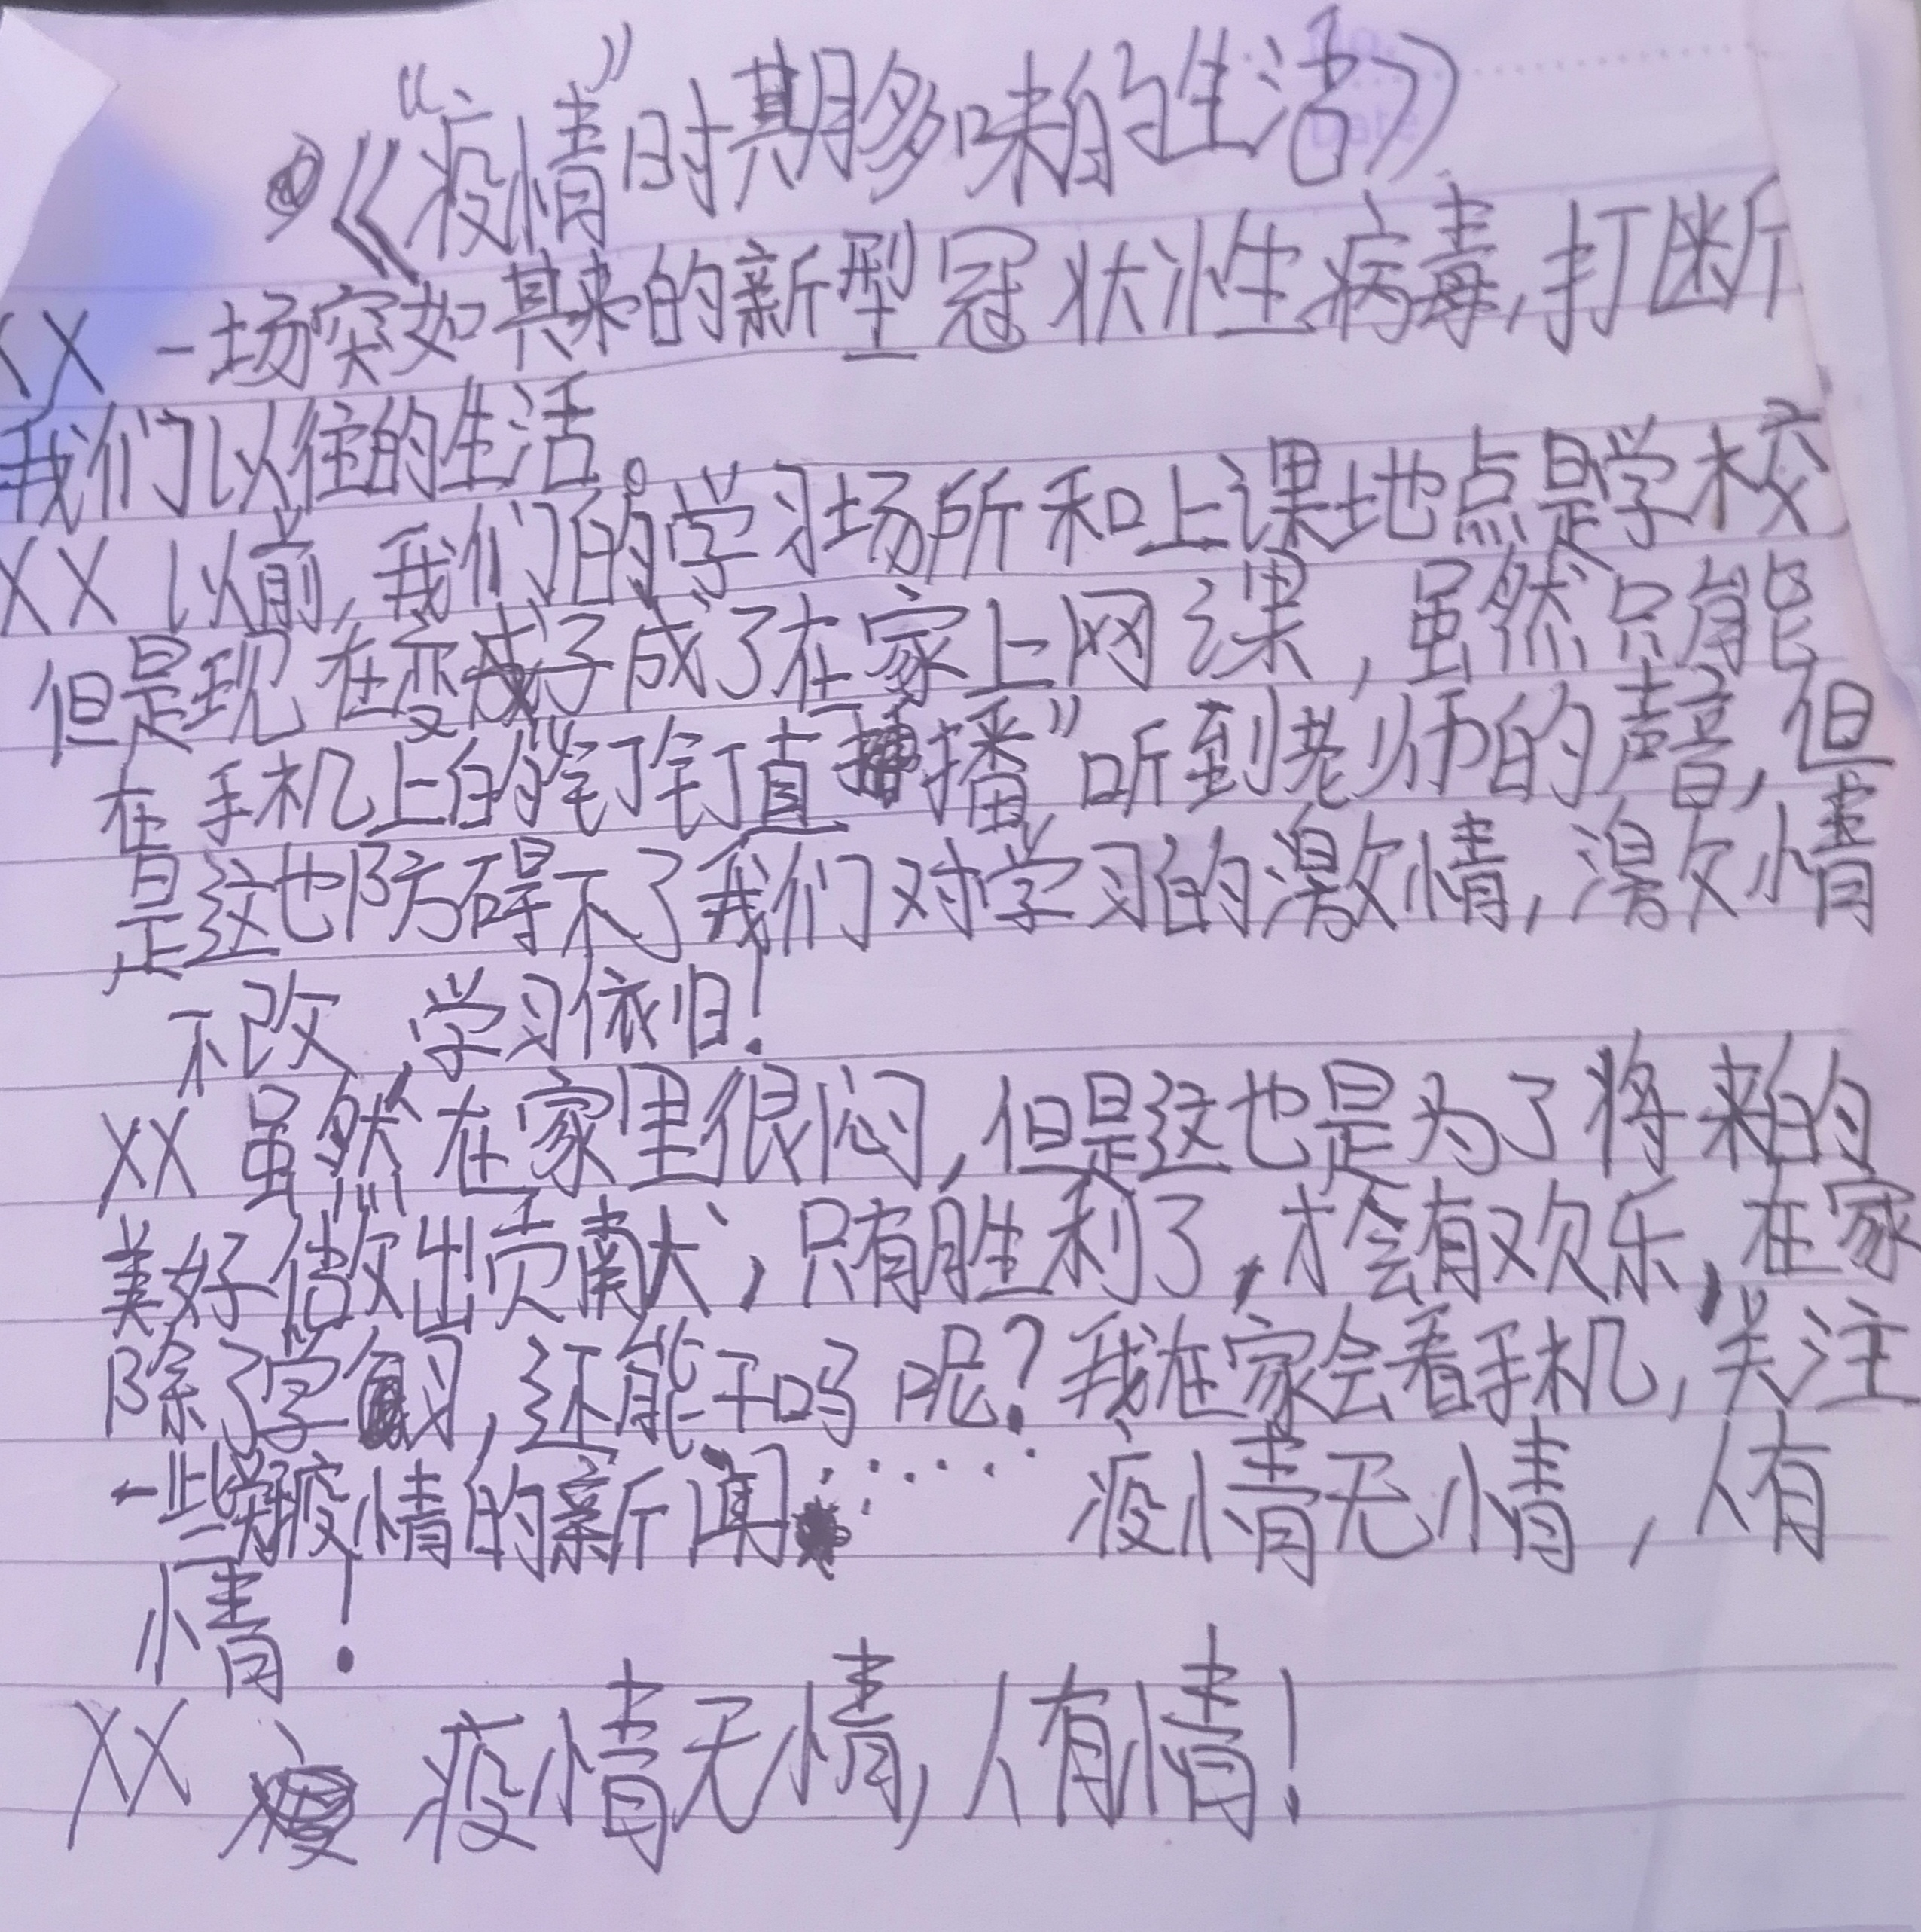 《“疫情”时期多味的生活》
XX 一场突如其来的新型冠状性病毒,打断
我们以往的生活。
XX 以前,我们的学习场所和上课地点是学校
但是现在变成了在家上网课,虽然只能
在手机上的钉钉直播”听到老师的声音,但
是这也防碍不了我们对学习的激情,激情
不改,学习依旧!
XX 虽然在家里很闷,但是这也是为了将来的
美好做出贡献,只有胜利了,才会有欢乐,在家
除了学习,还能干吗呢?我在家会看手机,关注
一些疫情的新闻…… 疫情无情,人有
情!
XX 疫情无情,人有情!